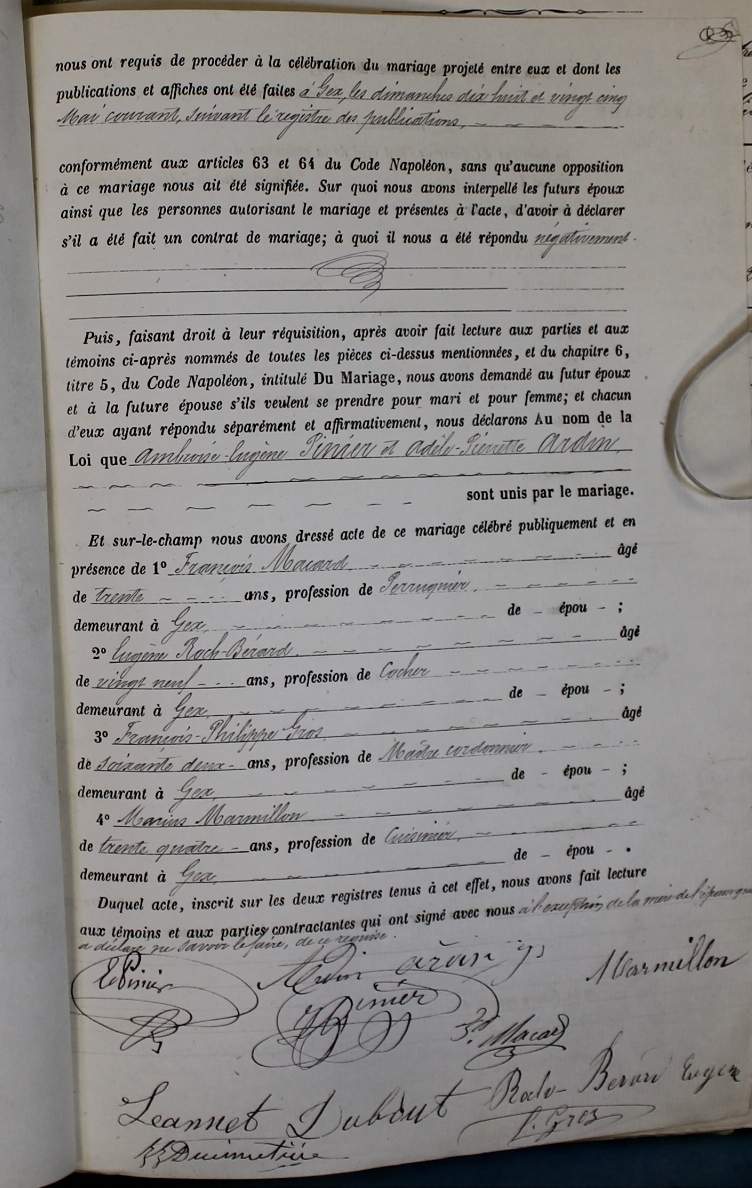 nous ont requis de procéder à la célébration du mariage projeté entre eux et dont les
publications et affiches ont été faites à Gex, les dimanches dix huit et vingt cinq
Mai courant, suivant le registre des publications,
conformément aux articles 63 et 64 du Code Napoléon, sans qu'aucune opposition
à ce mariage nous ait été signifiée. Sur quoi nous avons interpellé les futurs époux
ainsi que les personnes autorisant le mariage et présentes à l'acte, d'avoir à déclarer
s'il a été fait un contrat de mariage; à quoi il nous a été répondu négativement.
Puis, faisant droit à leur réquisition, après avoir fait lecture aux parties et aux
témoins ci-après nommés de toutes les pièces ci-dessus mentionnées, et du chapitre 6,
titre 5, du Code Napoléon, intitulé Du Mariage, nous avons demandé au futur époux
et à la future épouse s'ils veulent se prendre pour mari et pour femme; et chacun
d'eux ayant répondu séparément et affirmativement, nous déclarons Au nom de la
Loi que Ambroise-Eugène Pinier et Adèle-Pierrette Ardin,
sont unis par le mariage.
Et sur-le-champ nous avons dressé acte de ce mariage célébré publiquement et en
présence de 1° François Macard âgé
de trente ans, profession de Perruquier,
demeurant à Gex, de - épou - ;
2° Eugène Roch-Bérard, âgé
de vingt neuf ans, profession de Cocher
demeurant à Gex, de - épou - ;
3° François-Philippe Gros âgé
de soixante deux ans, profession de Maître cordonnier,
demeurant à Gex de - épou - ;
4° Marius Marmillon âgé
de trente quatre ans, profession de Cuisinier,
demeurant à Gex, de - épou - .
Duquel acte, inscrit sur les deux registres tenus à cet effet, nous avons fait lecture
aux témoins et aux parties contractantes qui ont signé avec nous à l'exception de la mère de l'époux qui
a déclaré ne savoir le faire, de ce requise.
E Pinier
Marmillon
Pinier
Macard
Jeannet Dubout Roch-Berard Eugene
Gros